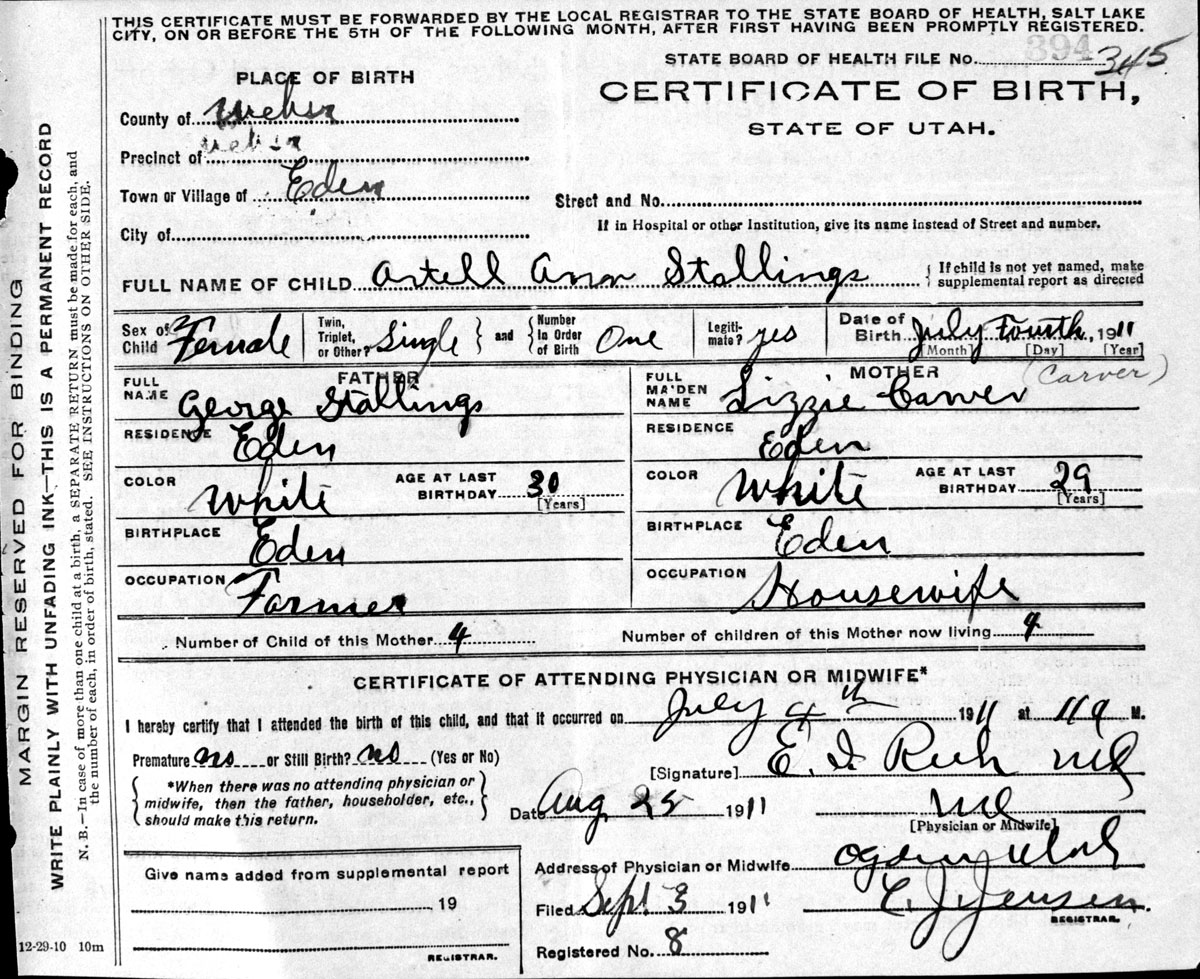 THIS CERTIFICATE MUST BE FORWARDED BY THE LOCAL REGISTRAR TO THE STATE BOARD OF HEALTH, SALT LAKE
CITY, ON OR BEFORE THE 5TH OF THE FOLLOWING MONTH, AFTER FIRST HAVING BEEN PROMPTLY REGISTERED.
394
STATE BOARD OF HEALTH FILE No. 345
PLACE OF BIRTH
CERTIFICATE OF BIRTH,
STATE OF UTAH.
County of Weber
Precinct of Weber
Town or Village of Eden
Street and No.
City of
If in Hospital or other Institution, give its name instead of Street and number.
FULL NAME OF CHILD Artell Ann Stallings
{ If child is not yet named, make
supplemental report as directed
Sex of Child Female
Twin, Triplet, or Other? Single } and { Number in Order of Birth One
Legitimate? yes
Date of Birth July Fourth, 1911
[Month] [Day] [Year]
FATHER
MOTHER
(Carver)
FULL NAME George Stallings
FULL MAIDEN NAME Lizzie Carver
RESIDENCE Eden
RESIDENCE Eden
COLOR White AGE AT LAST BIRTHDAY 30 [Years]
COLOR White AGE AT LAST BIRTHDAY 29 [Years]
BIRTHPLACE Eden
BIRTHPLACE Eden
OCCUPATION Farmer
OCCUPATION Housewife
Number of Child of this Mother 4
Number of children of this Mother now living 4
CERTIFICATE OF ATTENDING PHYSICIAN OR MIDWIFE*
I hereby certify that I attended the birth of this child, and that it occurred on July 4th 1911 at 11 a M.
Premature no or Still Birth? no (Yes or No)
[Signature] E. I. Rich MD
{ *When there was no attending physician or
midwife, then the father, householder, etc.,
should make this return. }
Date Aug 25 1911
MD
[Physician or Midwife]
Address of Physician or Midwife Ogden Utah
Give name added from supplemental report
19
REGISTRAR.
Filed Sept 3 1911
C. J. Jensen.
REGISTRAR.
Registered No. 8
12-29-10 10m
MARGIN RESERVED FOR BINDING
WRITE PLAINLY WITH UNFADING INK—THIS IS A PERMANENT RECORD
N. B.—In case of more than one child at a birth, a SEPARATE RETURN must be made for each, and
the number of each, in order of birth, stated. SEE INSTRUCTIONS ON OTHER SIDE.